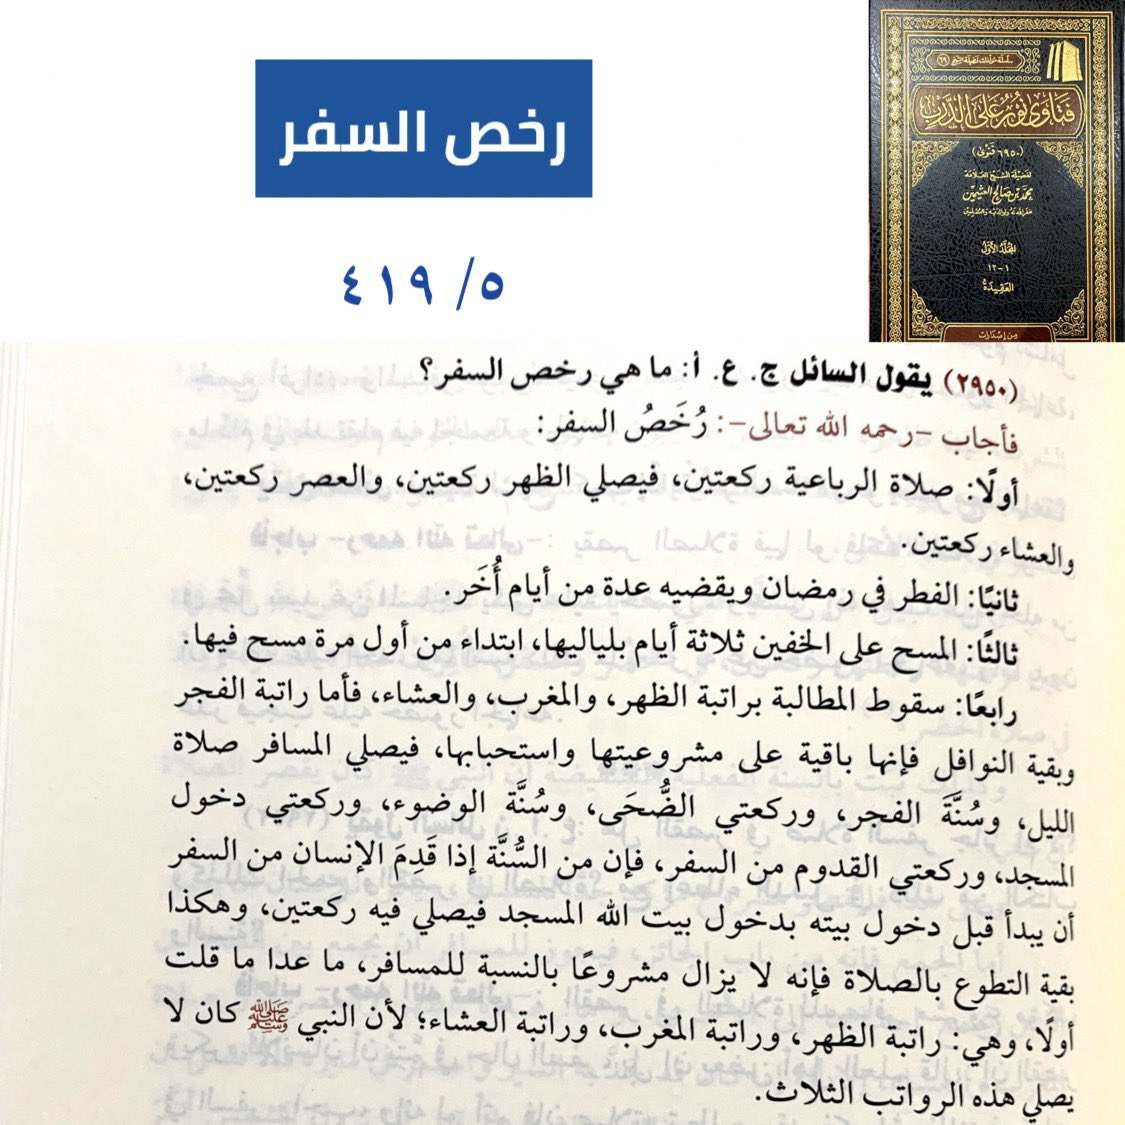 رخص السفر
٥/ ٤١٩
سلسلة مؤلفات فضيلة الشيخ (٦٩)
فتاوى نور على الدرب
(٦٩٥٠ فتوى)
لفضيلة الشيخ العلامة
محمد بن صالح العثيمين
غفر الله له ولوالديه وللمسلمين
المجلد الأول
١-١٢
العقيدة
من إصدارات
(٢٩٥٠) يقول السائل ج. ع. أ: ما هي رخص السفر؟
فأجاب -رحمه الله تعالى-: رُخَصُ السفر:
أولًا: صلاة الرباعية ركعتين، فيصلي الظهر ركعتين، والعصر ركعتين،
والعشاء ركعتين.
ثانيًا: الفطر في رمضان ويقضيه عدة من أيام أُخَر.
ثالثًا: المسح على الخفين ثلاثة أيام بلياليها، ابتداء من أول مرة مسح فيها.
رابعًا: سقوط المطالبة براتبة الظهر، والمغرب، والعشاء، فأما راتبة الفجر
وبقية النوافل فإنها باقية على مشروعيتها واستحبابها، فيصلي المسافر صلاة
الليل، وسُنَّةَ الفجر، وركعتي الضُّحَى، وسُنَّة الوضوء، وركعتي دخول
المسجد، وركعتي القدوم من السفر، فإن من السُّنَّة إذا قَدِمَ الإنسان من السفر
أن يبدأ قبل دخول بيته بدخول بيت الله المسجد فيصلي فيه ركعتين، وهكذا
بقية التطوع بالصلاة فإنه لا يزال مشروعًا بالنسبة للمسافر، ما عدا ما قلت
أولًا، وهي: راتبة الظهر، وراتبة المغرب، وراتبة العشاء؛ لأن النبي ﷺ كان لا
يصلي هذه الرواتب الثلاث.